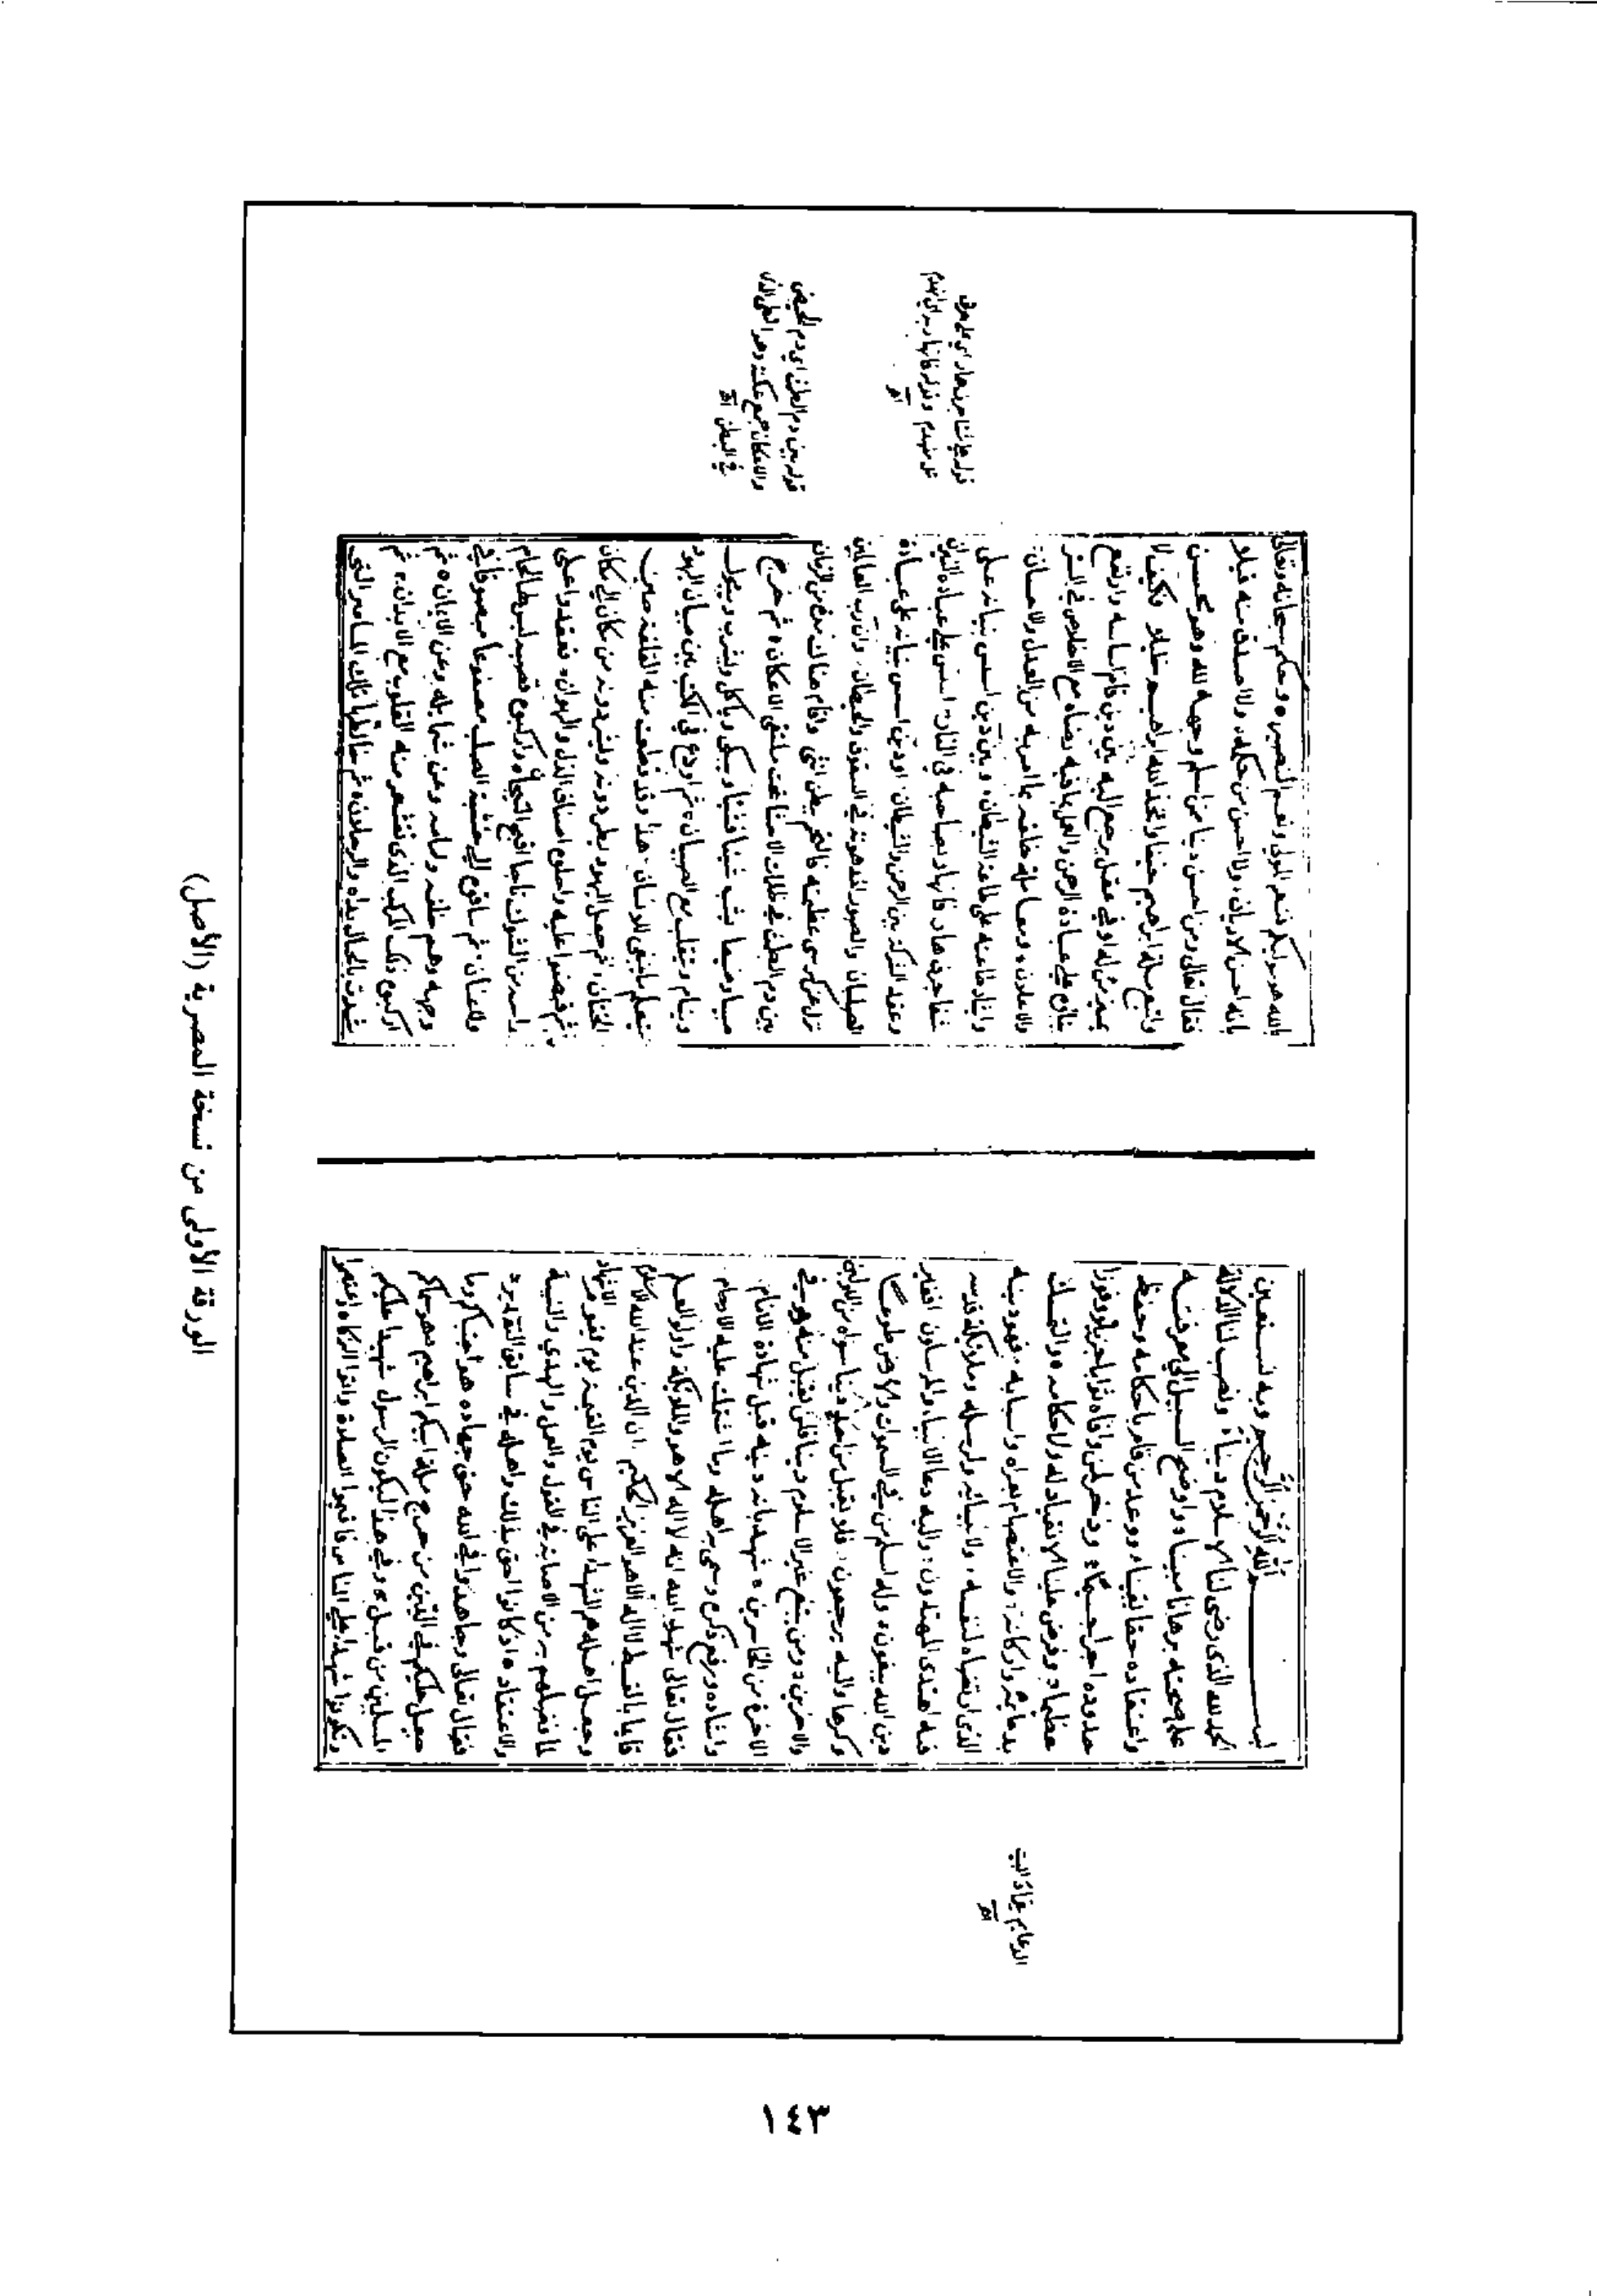 الورقة الأولى من نسخة المصرية (الأصل)
بسم الله الرحمن الرحيم وبه نستعين
الحمد لله الذى رضى لنا الاسلام دينا ونصب لنا الدلالة
على صحته برهانا مبينا واوضح السبيل الى معرفته
واعتقاده حقا يقينا ووعد من قام باحكامه وحفظ
حدوده اجرا جسيما وذخر لمن وافاه به ثوابا جزيلا وفوزا
عظيما وفرض علينا الانقياد له ولاحكامه والتمسك
بدعايمه واركانه والاعتصام بعراه واسبابه فهو دينه
الذى ارتضاه لنفسه ولانبيائه ولرسله وملائكة قدسه
فبه اهتدى المهتدون واليه دعا الانبياء والمرسلون افغير
دين الله يبغون وله اسلم من في السموات والارض طوعا
وكرها واليه يرجعون فلا يقبل من احد دينا سواه من الاولين
والاخرين ومن يبتغ غير الاسلام دينا فلن يقبل منه وهو في
الاخرة من الخاسرين شهد بانه دينه قبل شهادة الانام
واشاده ورفع ذكره وسمى به اهله وما اشتملت عليه الارحام
فقال تعالى شهد الله انه لا اله الا هو والملائكة واولوا العلم
قايما بالقسط لا اله الا هو العزيز الحكيم ان الدين عند الله الاسلام
وجعل اهله هم الشهداء على الناس يوم القيمة يوم يقوم الاشهاد
لما فضلهم به من الاصابة في القول والعمل والهدى والنية
والاعتقاد اذ كانوا احق بذلك واهله في سابق التقدير
فقال تعالى وجاهدوا في الله حق جهاده هو اجتباكم وما
جعل عليكم في الدين من حرج ملة ابيكم ابراهيم هو سماكم
المسلمين من قبل وفي هذا ليكون الرسول شهيدا عليكم
وتكونوا شهداء على الناس فاقيموا الصلاة واتوا الزكاة واعتصموا
الدعايم عماد البيت
اهـ
بالله هو موليكم فنعم المولى ونعم النصير وحكم سبحانه وتعالى
بانه احسن الاديان ولا احسن من حكمه ولا اصدق منه قيلا
فقال تعالى ومن احسن دينا ممن اسلم وجهه لله وهو محسن
واتبع ملة ابراهيم حنيفا واتخذ الله ابراهيم خليلا وكيف لا
يميز من له ادنى عقل يرجع اليه بين دين قام اساسه وارتفع
بناؤه على عبادة الرحمن والعمل بما يحبه ويرضاه مع الاخلاص في السر
والاعلان ومعاملة خلقه بما امر به من العدل والاحسان
وايثار طاعته على طاعة الشيطان وبين دين اسس بنيانه على
شفا جرف هار فانهار بصاحبه في النار اسس على عبادة النيران
وعقد الشركة بين الرحمن والشيطان او دين اسس بنيانه على عبادة
الصلبان والصور المدهونة في السقوف والحيطان وان رب العالمين
نزل عن كرسى عظمته فالتحم ببطن انثى واقام هناك مدة من الزمان
بين دم الطمث في ظلمات الاحشاء تحت ملتقى الاعكان ثم خرج
صبيا رضيعا يشب شيئا فشيئا ويبكى وياكل ويشرب ويبول
وينام ويتقلب مع الصبيان ثم اودع في المكتب بين صبيان اليهود
يتعلم ما ينبغى للانسان هذا وقد قطعت منه القلفة حين
الختان ثم جعل اليهود يطردونه ويشردونه من مكان الى مكان
ثم قبضوا عليه واحلوه اصناف الذل والهوان فعقدوا على
راسه من الشوك تاجا من اقبح التيجان واركبوه قصبة ليس لها لجام
ولا عنان ثم ساقوه الى خشبة الصلب مصفوعا مبصوقا في
وجهه وهم خلفه وامامه وعن شمايله وعن الايمان ثم
اركبوه ذلك المركب الذى تقشعر منه القلوب مع الابدان ثم
شدت بالحبال يداه والرجلان ثم خالطها تلك المسامير التى
قوله على شفا جرف هار اى على حرف
اهـ
قوله بين دم الطمث اى دم الحيض
والاعكان جمع عكنة وهو الطى الذى
في البطن اهـ
١٤٣